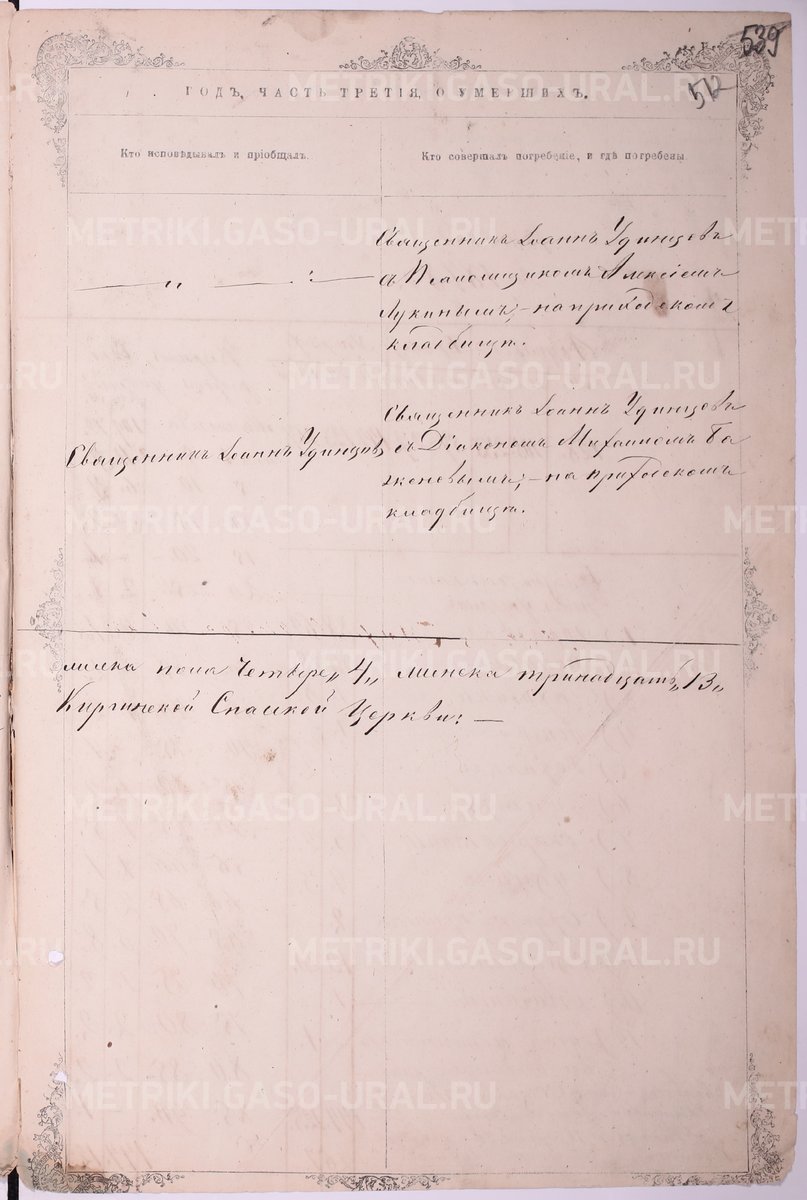 539
512
ГОДЪ, ЧАСТЬ ТРЕТІЯ, О УМЕРШИХЪ.
Кто исповѣдывалъ и пріобщалъ.
Кто совершалъ погребеніе, и гдѣ погребены
Священникъ Іоаннъ Удинцовъ
съ Псаломщикомъ Алексіемъ
Лукинымъ;—на приходскомъ
кладбищѣ.
Священникъ Іоаннъ Удинцовъ
Священникъ Іоаннъ Удинцовъ
съ Діакономъ Михаиломъ Ба
женовымъ;—на приходскомъ
кладбищѣ.
пола Четыре „4„ тринадцать „13„
Киргинской Спасской Церкви: —
METRIKI.GASO-URAL.RU